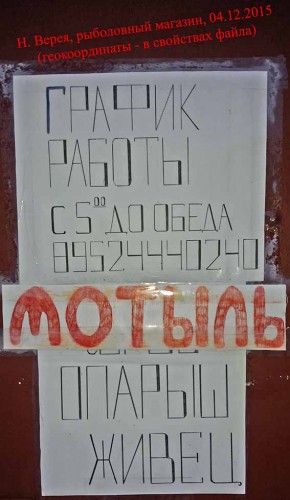 Н. Верея, рыболовный магазин, 04.12.2015
(геокоординаты - в свойствах файла)
ГРАФИК
РАБОТЫ
С 5⁰⁰ ДО ОБЕДА
89524440240
МОТЫЛЬ
ОПАРЫШ
ЖИВЕЦ